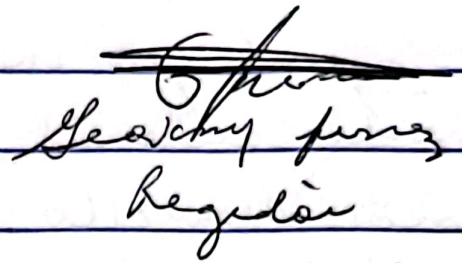 Geovany perez
Regidor